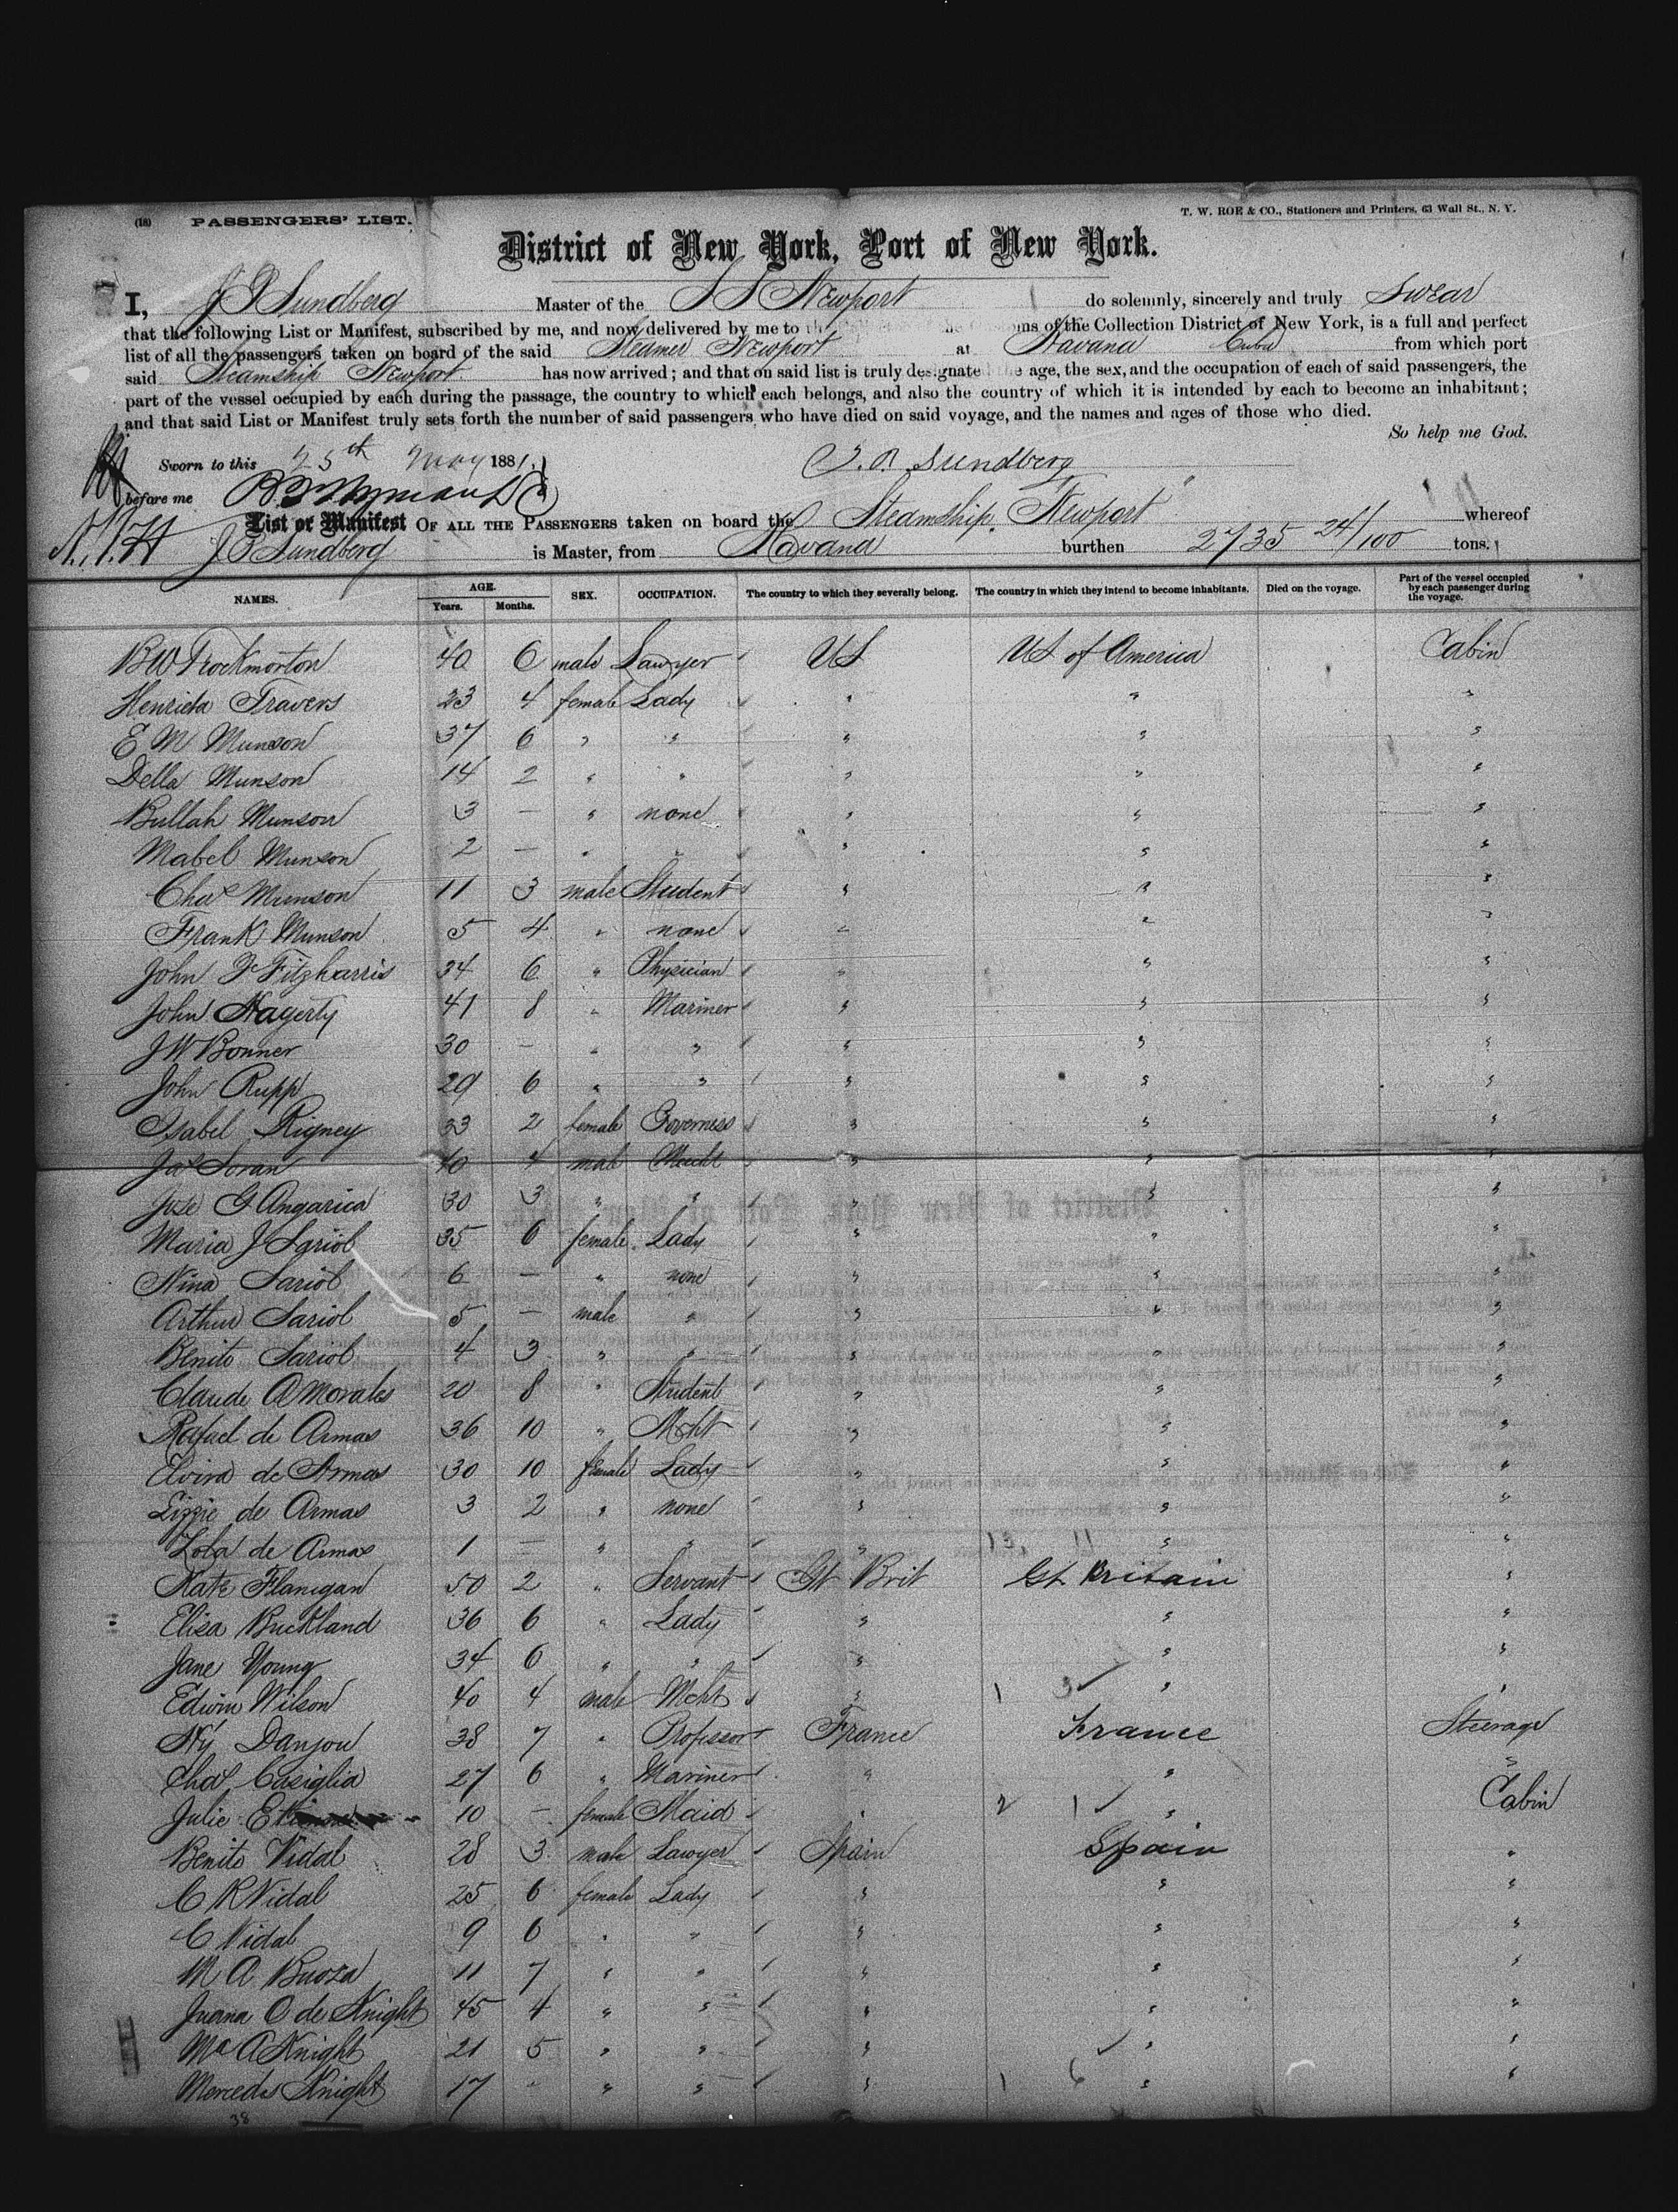 (18) PASSENGERS' LIST.
T. W. ROE & CO., Stationers and Printers, 63 Wall St., N. Y.
District of New York, Port of New York.
I, J P Sundberg Master of the S S Newport do solemnly, sincerely and truly Swear
that the following List or Manifest, subscribed by me, and now delivered by me to the of the Collection District of New York, is a full and perfect
list of all the passengers taken on board of the said Steamer Newport at Havana Cuba from which port
said Steamship Newport has now arrived; and that on said list is truly designated the age, the sex, and the occupation of each of said passengers, the
part of the vessel occupied by each during the passage, the country to which each belongs, and also the country of which it is intended by each to become an inhabitant;
and that said List or Manifest truly sets forth the number of said passengers who have died on said voyage, and the names and ages of those who died.
So help me God.
Sworn to this 25th May 1881.
J. P. Sundberg
before me
List or Manifest OF ALL THE PASSENGERS taken on board the Steamship Newport whereof
J P Sundberg is Master, from Havana burthen 2735 24/100 tons.
NAMES. AGE. Years. Months. SEX. OCCUPATION. The country to which they severally belong. The country in which they intend to become inhabitants. Died on the voyage. Part of the vessel occupied by each passenger during the voyage.
B W Trockmorton 40 6 male Lawyer US US of America Cabin
Henrieta Travers 23 4 female Lady " " "
E M Munson 37 6 " " " " "
Della Munson 14 2 " " " " "
Bullah Munson 3 – " none " " "
Mabel Munson 2 – " " " " "
Chas Munson 11 3 male Student " " "
Frank Munson 5 4 " none " " "
John F Fitzharris 34 6 " Physician " " "
John Hagerty 41 8 " Mariner " " "
J W Bonner 30 – " " " " "
John Rupp 29 6 " " " " "
Isabel Rigney 33 2 female Governess " " "
Jas Soran 40 4 male Mercht " " "
Jose G Angarica 30 3 " " " " "
Maria J Sariol 35 6 female Lady " " "
Nina Sariol 6 – " none " " "
Arthur Sariol 5 – male " " " "
Benito Sariol 4 3 " " " " "
Claude A Morales 20 8 " Student " " "
Rafael de Armas 36 10 " Mcht " " "
Elvira de Armas 30 10 female Lady " " "
Lizzie de Armas 3 2 " none " " "
Lola de Armas 1 – " " " " "
Kate Flanigan 50 2 " Servant Gt Brit Gt Britain "
Elisa Buckland 36 6 " Lady " " "
Jane Young 34 6 " " " " "
Edwin Wilson 40 4 male Mcht " " "
Hy Danjou 38 7 " Professor France France Steerage
Chas Casiglia 27 6 " Mariner " " "
Julie 10 – female Maid " " Cabin
Benito Vidal 28 3 male Lawyer Spain Spain "
C R Vidal 25 6 female Lady " " "
C Vidal 9 6 " " " " "
M A Buoza 11 7 " " " " "
Juana O de Knight 45 4 " " " " "
Ma A Knight 21 5 " " " " "
Mercedes Knight 17 – " " " " "
38